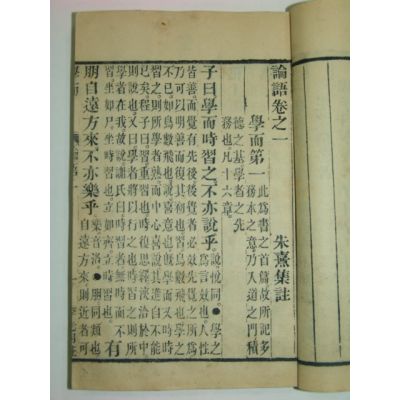 論語卷之一
朱熹集註
學而第一
此為書之首篇故所記多
務本之意乃入道之門積
德之基學者之先
務也凡十六章
子曰學而時習之不亦說乎
說悅同●學之
為言效也人性
皆善而覺有先後後覺者必效先覺之所為
乃可以明善而復其初也習鳥數飛也學之
不已如鳥數飛也說喜意也既學而又時時
習之則所學者熟而中心喜說其進自不能
已矣程子曰習重習也時復思繹浹洽於中
則說也又曰學者將以行之也時習之則所
學者在我故說謝氏曰時習者無時而不
習坐如尸坐時習也立如齊立時習也
有
朋自遠方來不亦樂乎
樂音洛●朋同類也
自遠方來則近者可